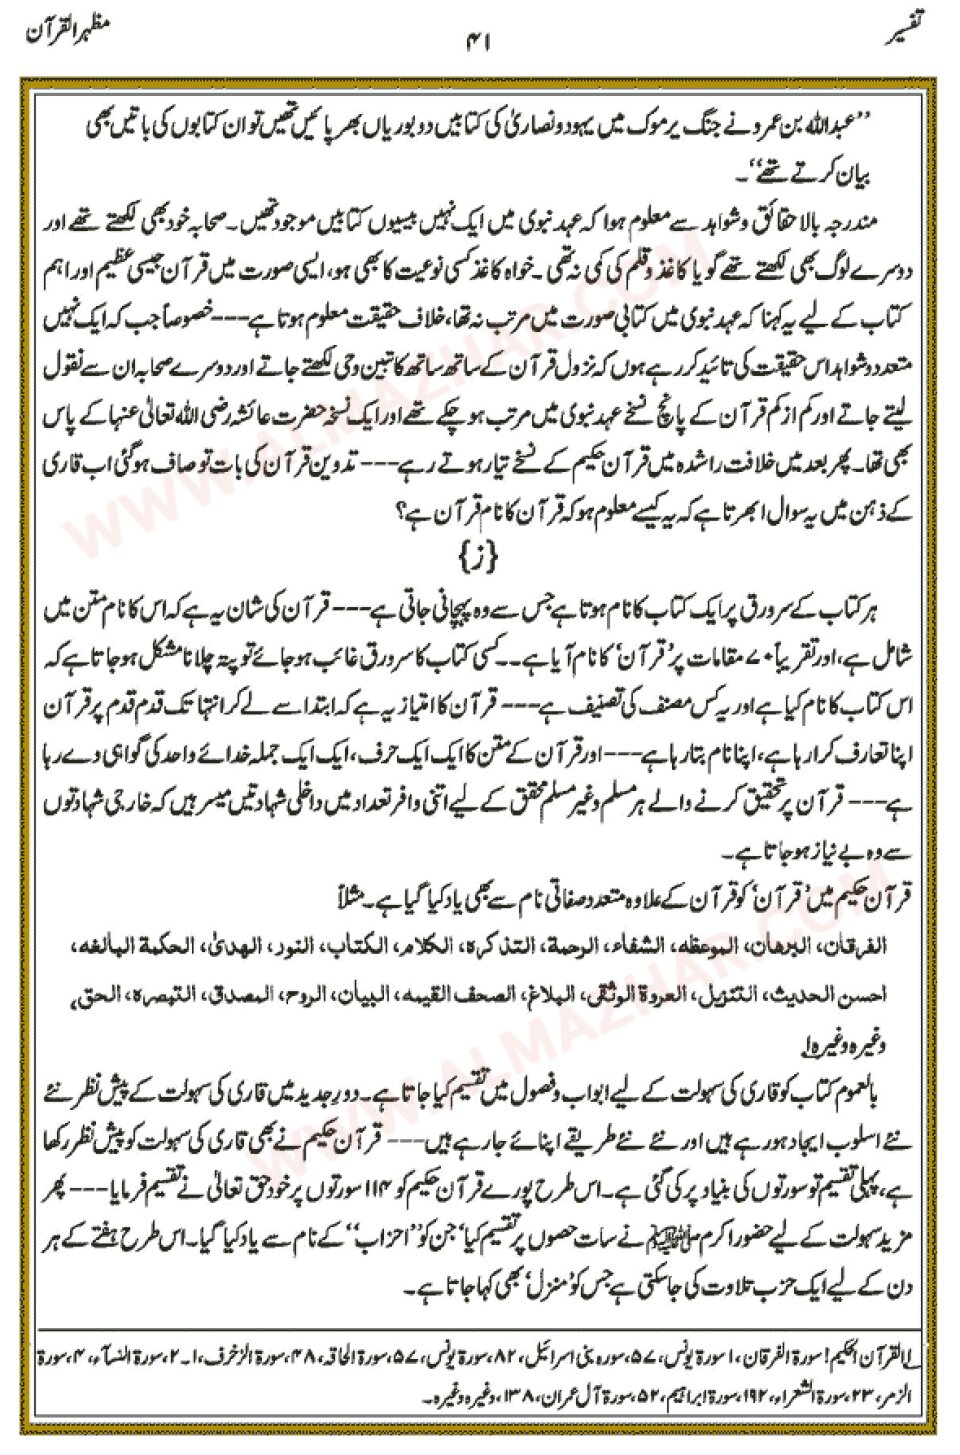 تفسیر
۴۱
مظہر القرآن
’’عبداللہ بن عمرو نے جنگ یرموک میں یہود و نصاریٰ کی کتابیں دو بوریاں بھر پائیں تھیں تو ان کتابوں کی باتیں بھی
بیان کرتے تھے‘‘۔
مندرجہ بالا حقائق و شواہد سے معلوم ہوا کہ عہد نبوی میں ایک نہیں بیسیوں کتابیں موجود تھیں۔ صحابہ خود بھی لکھتے تھے اور
دوسرے لوگ بھی لکھتے تھے گویا کاغذ و قلم کی کمی نہ تھی۔ خواہ کاغذ کسی نوعیت کا بھی ہو، ایسی صورت میں قرآن جیسی عظیم اور اہم
کتاب کے لیے یہ کہنا کہ عہد نبوی میں کتابی صورت میں مرتب نہ تھا، خلاف حقیقت معلوم ہوتا ہے--- خصوصاً جب کہ ایک نہیں
متعدد شواہد اس حقیقت کی تائید کر رہے ہوں کہ نزول قرآن کے ساتھ ساتھ کاتبین وحی لکھتے جاتے اور دوسرے صحابہ ان سے نقول
لیتے جاتے اور کم از کم قرآن کے پانچ نسخے عہد نبوی میں مرتب ہو چکے تھے اور ایک نسخہ حضرت عائشہ رضی اللہ تعالیٰ عنہا کے پاس
بھی تھا۔ پھر بعد میں خلافت راشدہ میں قرآن حکیم کے نسخے تیار ہوتے رہے--- تدوین قرآن کی بات تو صاف ہو گئی اب قاری
کے ذہن میں یہ سوال ابھرتا ہے کہ یہ کیسے معلوم ہو کہ قرآن کا نام قرآن ہے؟
{ز}
ہر کتاب کے سرورق پر ایک کتاب کا نام ہوتا ہے جس سے وہ پہچانی جاتی ہے--- قرآن کی شان یہ ہے کہ اس کا نام متن میں
شامل ہے، اور تقریباً ۷۰ مقامات پر ’قرآن‘ کا نام آیا ہے۔۔ کسی کتاب کا سرورق غائب ہو جائے تو پتہ چلانا مشکل ہو جاتا ہے کہ
اس کتاب کا نام کیا ہے اور یہ کس مصنف کی تصنیف ہے--- قرآن کا امتیاز یہ ہے کہ ابتدا سے لے کر انتہا تک قدم قدم پر قرآن
اپنا تعارف کرا رہا ہے، اپنا نام بتا رہا ہے--- اور قرآن کے متن کا ایک ایک حرف، ایک ایک جملہ خدائے واحد کی گواہی دے رہا
ہے--- قرآن پر تحقیق کرنے والے ہر مسلم و غیر مسلم محقق کے لیے اتنی وافر تعداد میں داخلی شہادتیں میسر ہیں کہ خارجی شہادتوں
سے وہ بے نیاز ہو جاتا ہے۔
قرآن حکیم میں ’قرآن‘ کو قرآن کے علاوہ متعدد صفاتی نام سے بھی یاد کیا گیا ہے۔ مثلاً
الفرقان، البرھان، الموعظہ، الشفاء، الرحمۃ، التذکرہ، الکلام، الکتاب، النور، الھدیٰ، الحکمۃ البالغہ،
احسن الحدیث، التنزیل، العروۃ الوثقی، البلاغ، الصحف القیمہ، البیان، الروح، المصدق، التبصرہ، الحق،
وغیرہ وغیرہ۱؎
بالعموم کتاب کو قاری کی سہولت کے لیے ابواب و فصول میں تقسیم کیا جاتا ہے۔ دور جدید میں قاری کی سہولت کے پیش نظر نئے
نئے اسلوب ایجاد ہو رہے ہیں اور نئے نئے طریقے اپنائے جا رہے ہیں--- قرآن حکیم نے بھی قاری کی سہولت کو پیش نظر رکھا
ہے، پہلی تقسیم تو سورتوں کی بنیاد پر کی گئی ہے۔ اس طرح پورے قرآن حکیم کو ۱۱۴ سورتوں پر خود حق تعالیٰ نے تقسیم فرمایا--- پھر
مزید سہولت کے لیے حضور اکرم ﷺ نے سات حصوں پر تقسیم کیا‘ جن کو ’’احزاب‘‘ کے نام سے یاد کیا گیا۔ اس طرح ہفتے کے ہر
دن کے لیے ایک حزب تلاوت کی جا سکتی ہے جس کو ’منزل‘ بھی کہا جاتا ہے۔
۱؎ القرآن الحکیم! سورۃ الفرقان، ۱ سورۃ یونس، ۵۷، سورہ بنی اسرائیل، ۸۲، سورۃ یونس، ۵۷، سورۃ الحاقہ، ۴۸، سورۃ الزخرف، ۱۔۲، سورۃ النسآء، ۴، سورۃ
الزمر، ۲۳، سورۃ الشعراء، ۱۹۲، سورۃ ابراہیم، ۵۲، سورۃ آل عمران، ۱۳۸، وغیرہ وغیرہ۔
WWW.ALMAZHAR.COM
WWW.ALMAZHAR.COM